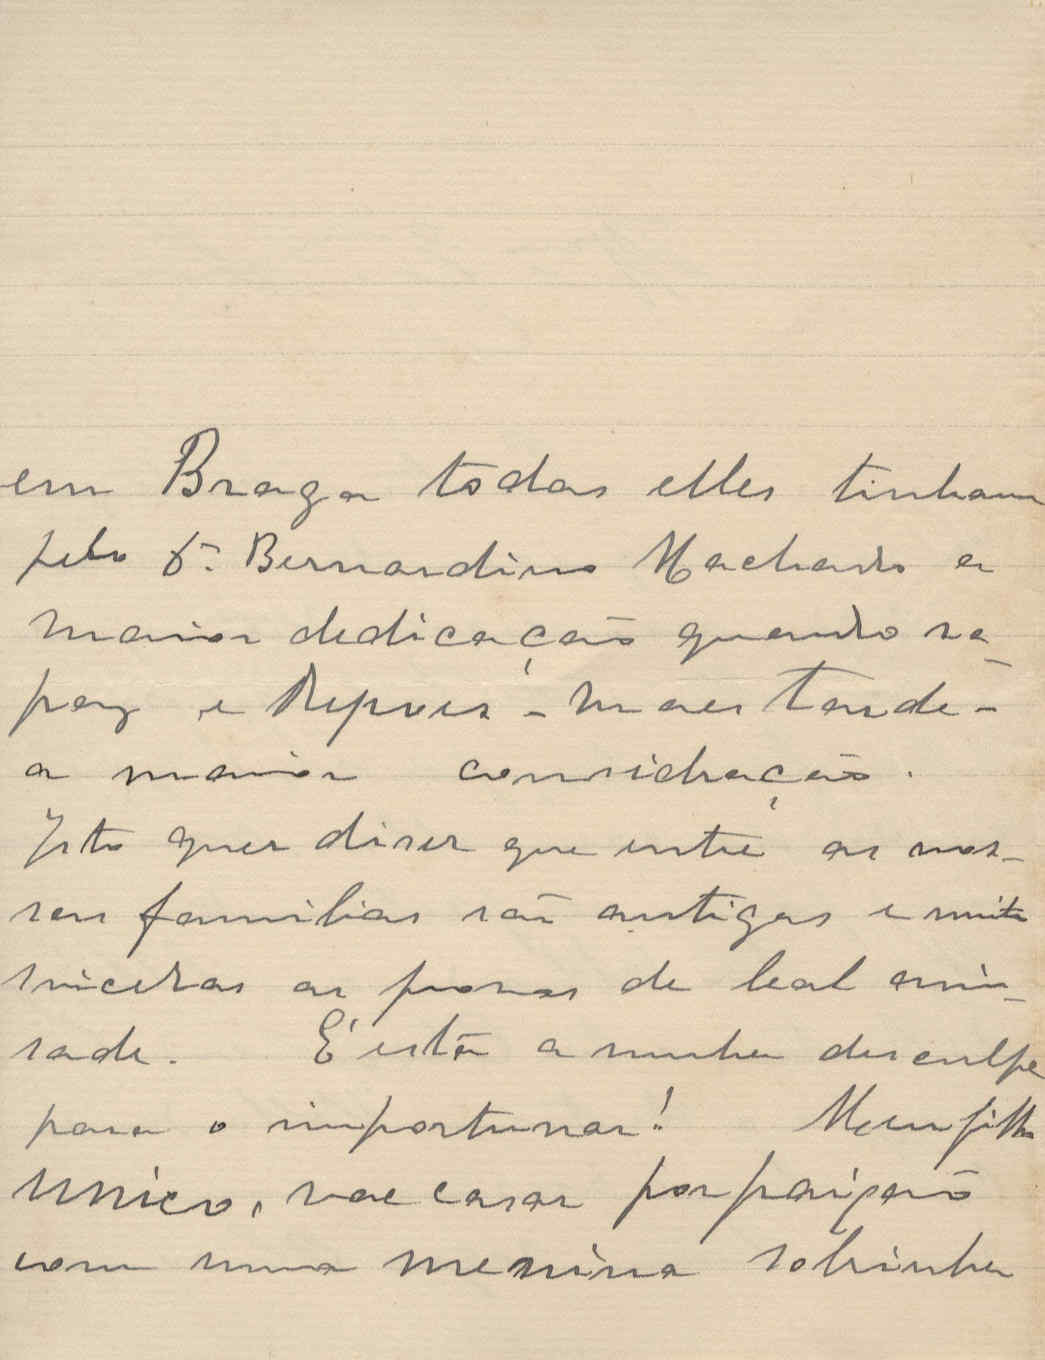 em Braga todos elles tinham
pelo Dr. Bernardino Machado a
maior dedicação quando ra-
paz e depois - mais tarde -
a maior consideração.
Isto quer diser que entre as nos-
sas familias são antigas e muito
sinceras as provas de leal ami-
sade. É esta a minha desculpa
para o importunar! Meu filho
unico, vae casar por paixão
com uma menina sobrinha